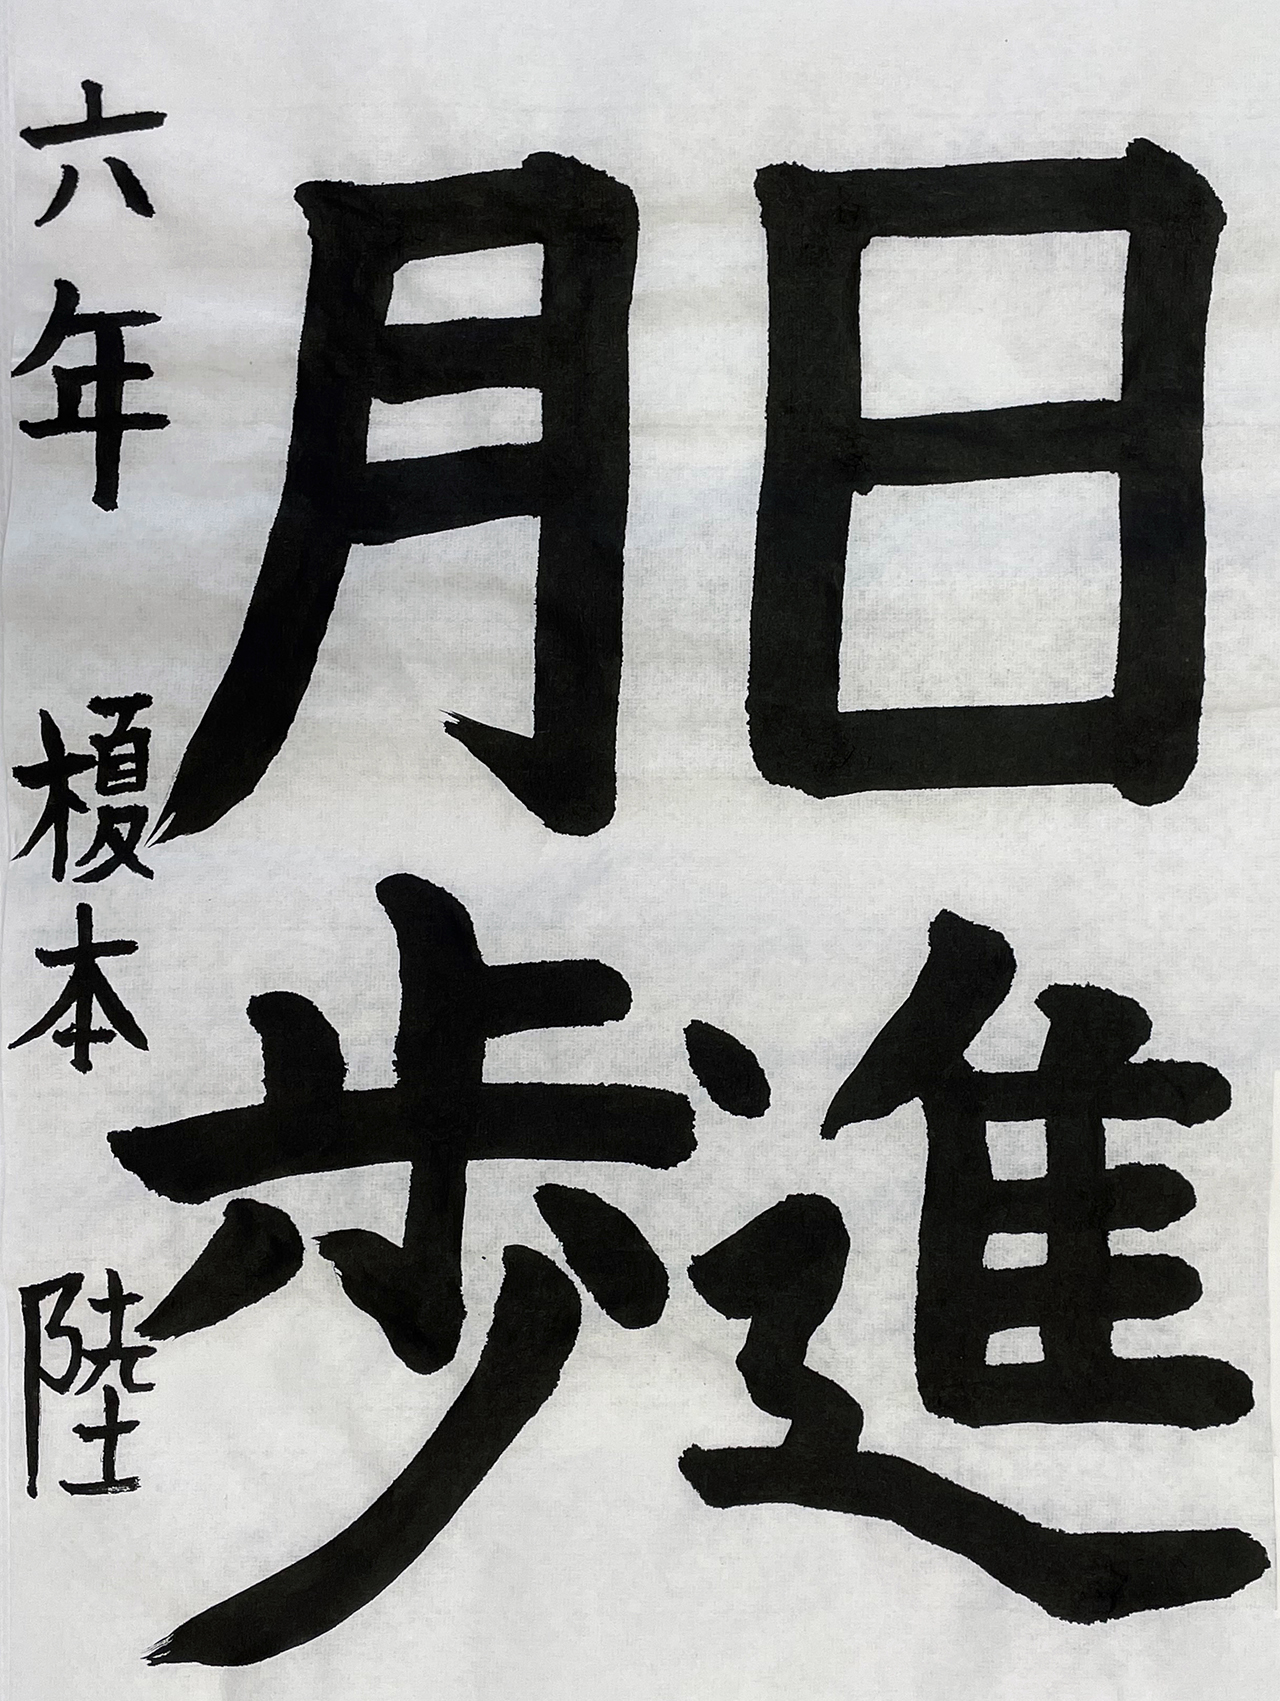 日進
月歩
六年 榎本 陸